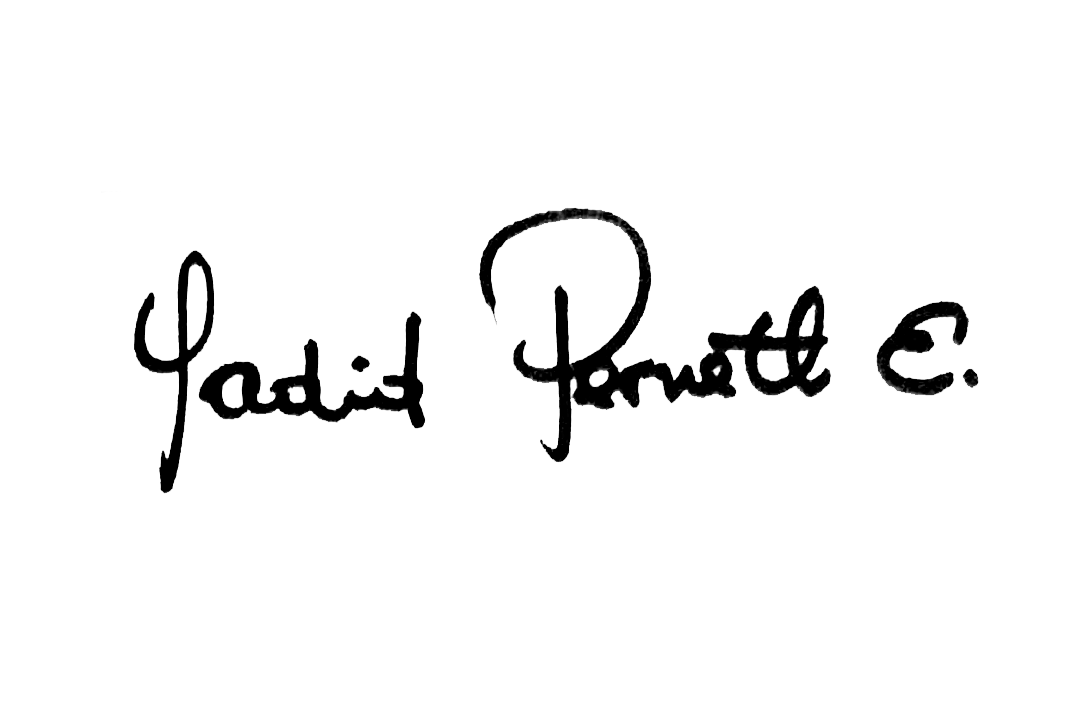 Yadid Pernett E.